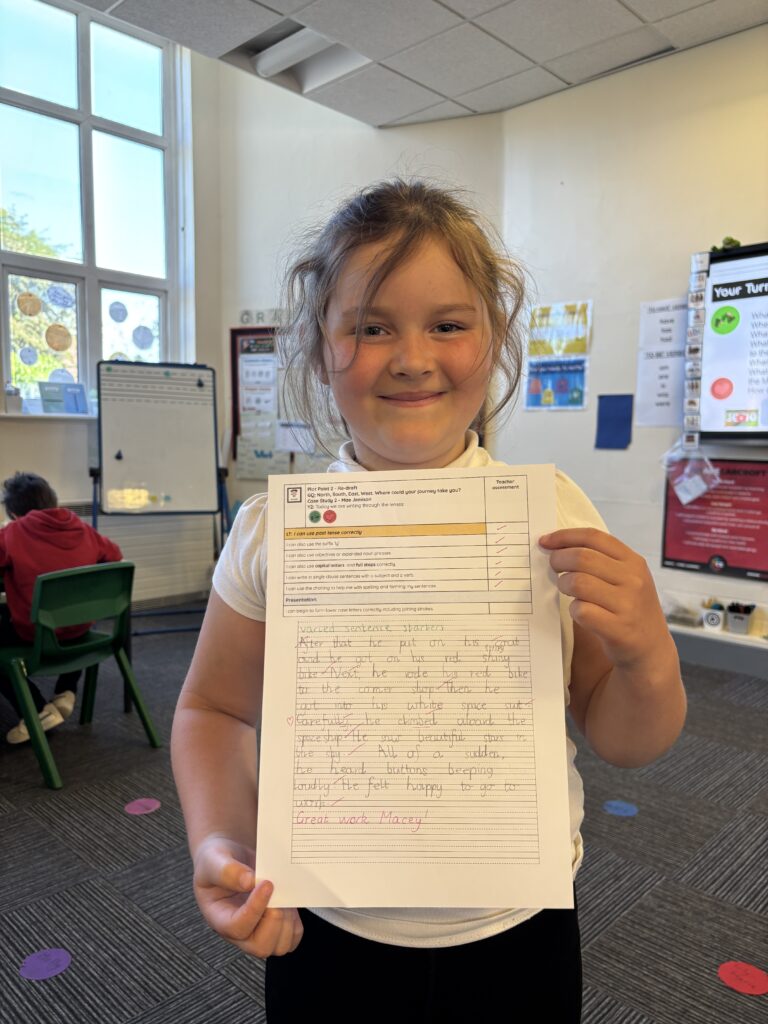 Plot Point 2 - Re-draft
GQ: North, South, East, West. Where could your journey take you?
Case Study 2 - Mae Jemison
Y2: Today we are writing through the lenses:
Teacher assessment
LI: I can use past tense correctly
I can also use the suffix 'ly'
I can also use adjectives or expanded noun phrases.
I can also use capital letters and full stops correctly.
I can write in single clause sentences with a subject and a verb.
I can use the chatting to help me with spelling and forming my sentences.
Presentation:
I can begin to form lower case letters correctly including joining strokes.
varied sentence starters
After that he put on his coat
and he got on his red shiny
bike. Next, he rode his red bike
to the corner shop. Then he
got into his white space suit.
Carefully, he climbed aboard the
spaceship. He saw beautiful stars in
the sky. All of a sudden,
he heard buttons beeping
loudly. He felt happy to go to
work.
Great work Macey!
Your Turn